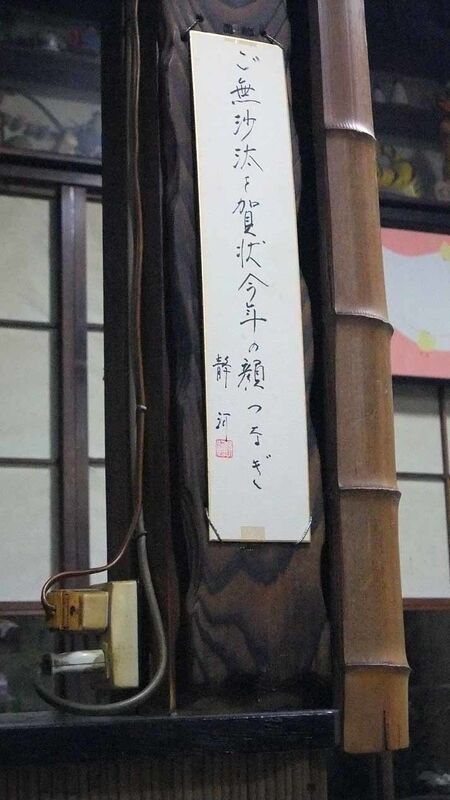 ご無沙汰を賀状今年の顔つなぎ
静河